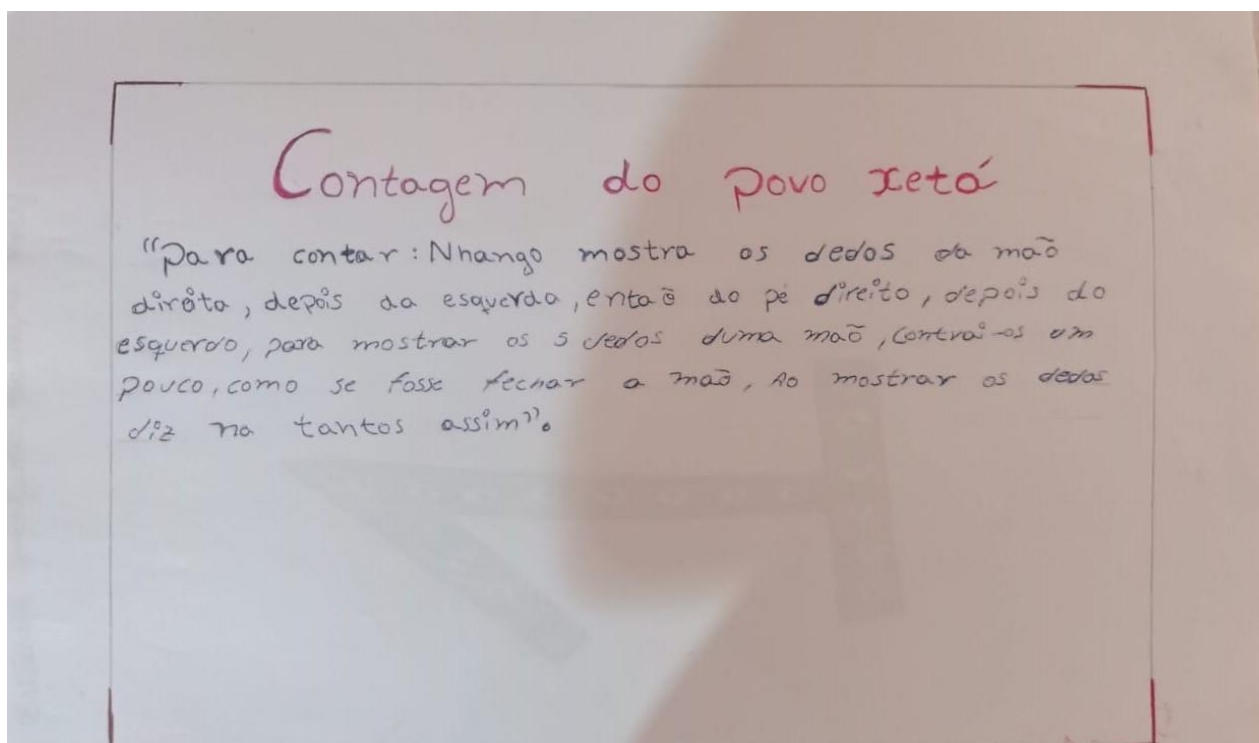 Contagem do povo xetá
"Para contar: Nhango mostra os dedos da maõ
direita, depois da esquerda, entaõ do pé direito, depois do
esquerdo, para mostrar os 5 dedos duma maõ, contrai-os um
pouco, como se fosse fechar a maõ, Ao mostrar os dedos
diz na tantos assim".